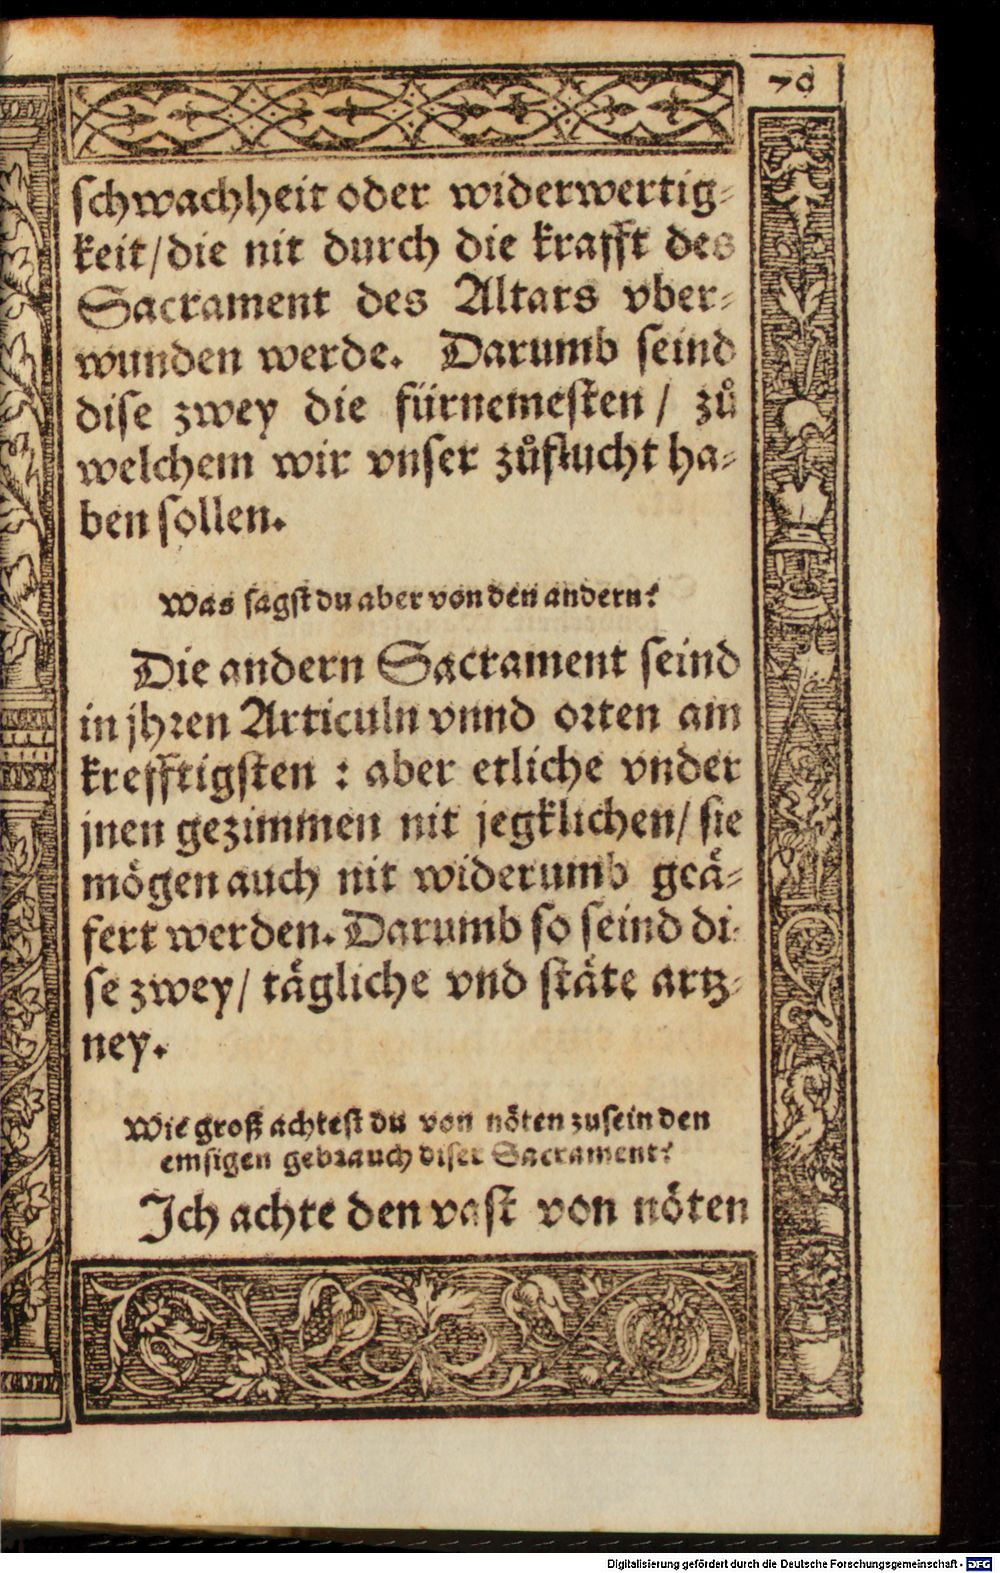 70
schwachheit oder widerwertig⸗
keit/die nit durch die krafft des
Sacrament des Altars vber⸗
wunden werde. Darumb seind
dise zwey die fürnemesten / zů
welchem wir vnser zůflucht ha⸗
ben sollen.
Was sagst du aber von den andern?
Die andern Sacrament seind
in jhren Articuln vnnd orten am
krefftigsten : aber etliche vnder
jnen gezimmen nit jegklichen/ sie
mögen auch nit widerumb geä⸗
fert werden. Darumb so seind di⸗
se zwey/ tägliche vnd stäte artz⸗
ney.
Wie groß achtest du von nöten zusein den
emsigen gebrauch diser Sacrament?
Ich achte den vast von nöten
Digitalisierung gefördert durch die Deutsche Forschungsgemeinschaft - DFG